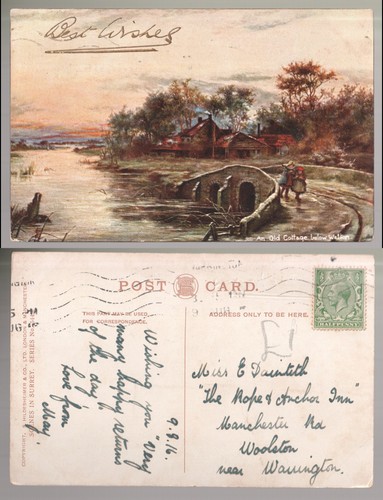 Best Wishes
An Old Cottage, below Walton
POST CARD.
THIS PART MAY BE USED
FOR CORRESPONDENCE.
ADDRESS ONLY TO BE HERE.
HALFPENNY
£1
9.8.16.
Wishing you "very
many happy returns
of the day"
Love from
May.
Miss E
"The Rope & Anchor Inn"
Manchester Rd
Woolston
near Warrington.
COPYRIGHT, HILDESHEIMER & CO. LTD. LONDON & MANCHESTER
SCENES IN SURREY. SERIES No